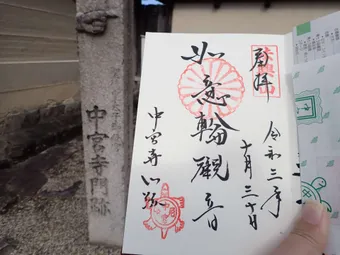 奉拝
令和三年
十月三十日
如意輪觀音
中宮寺門跡
中宮寺門跡